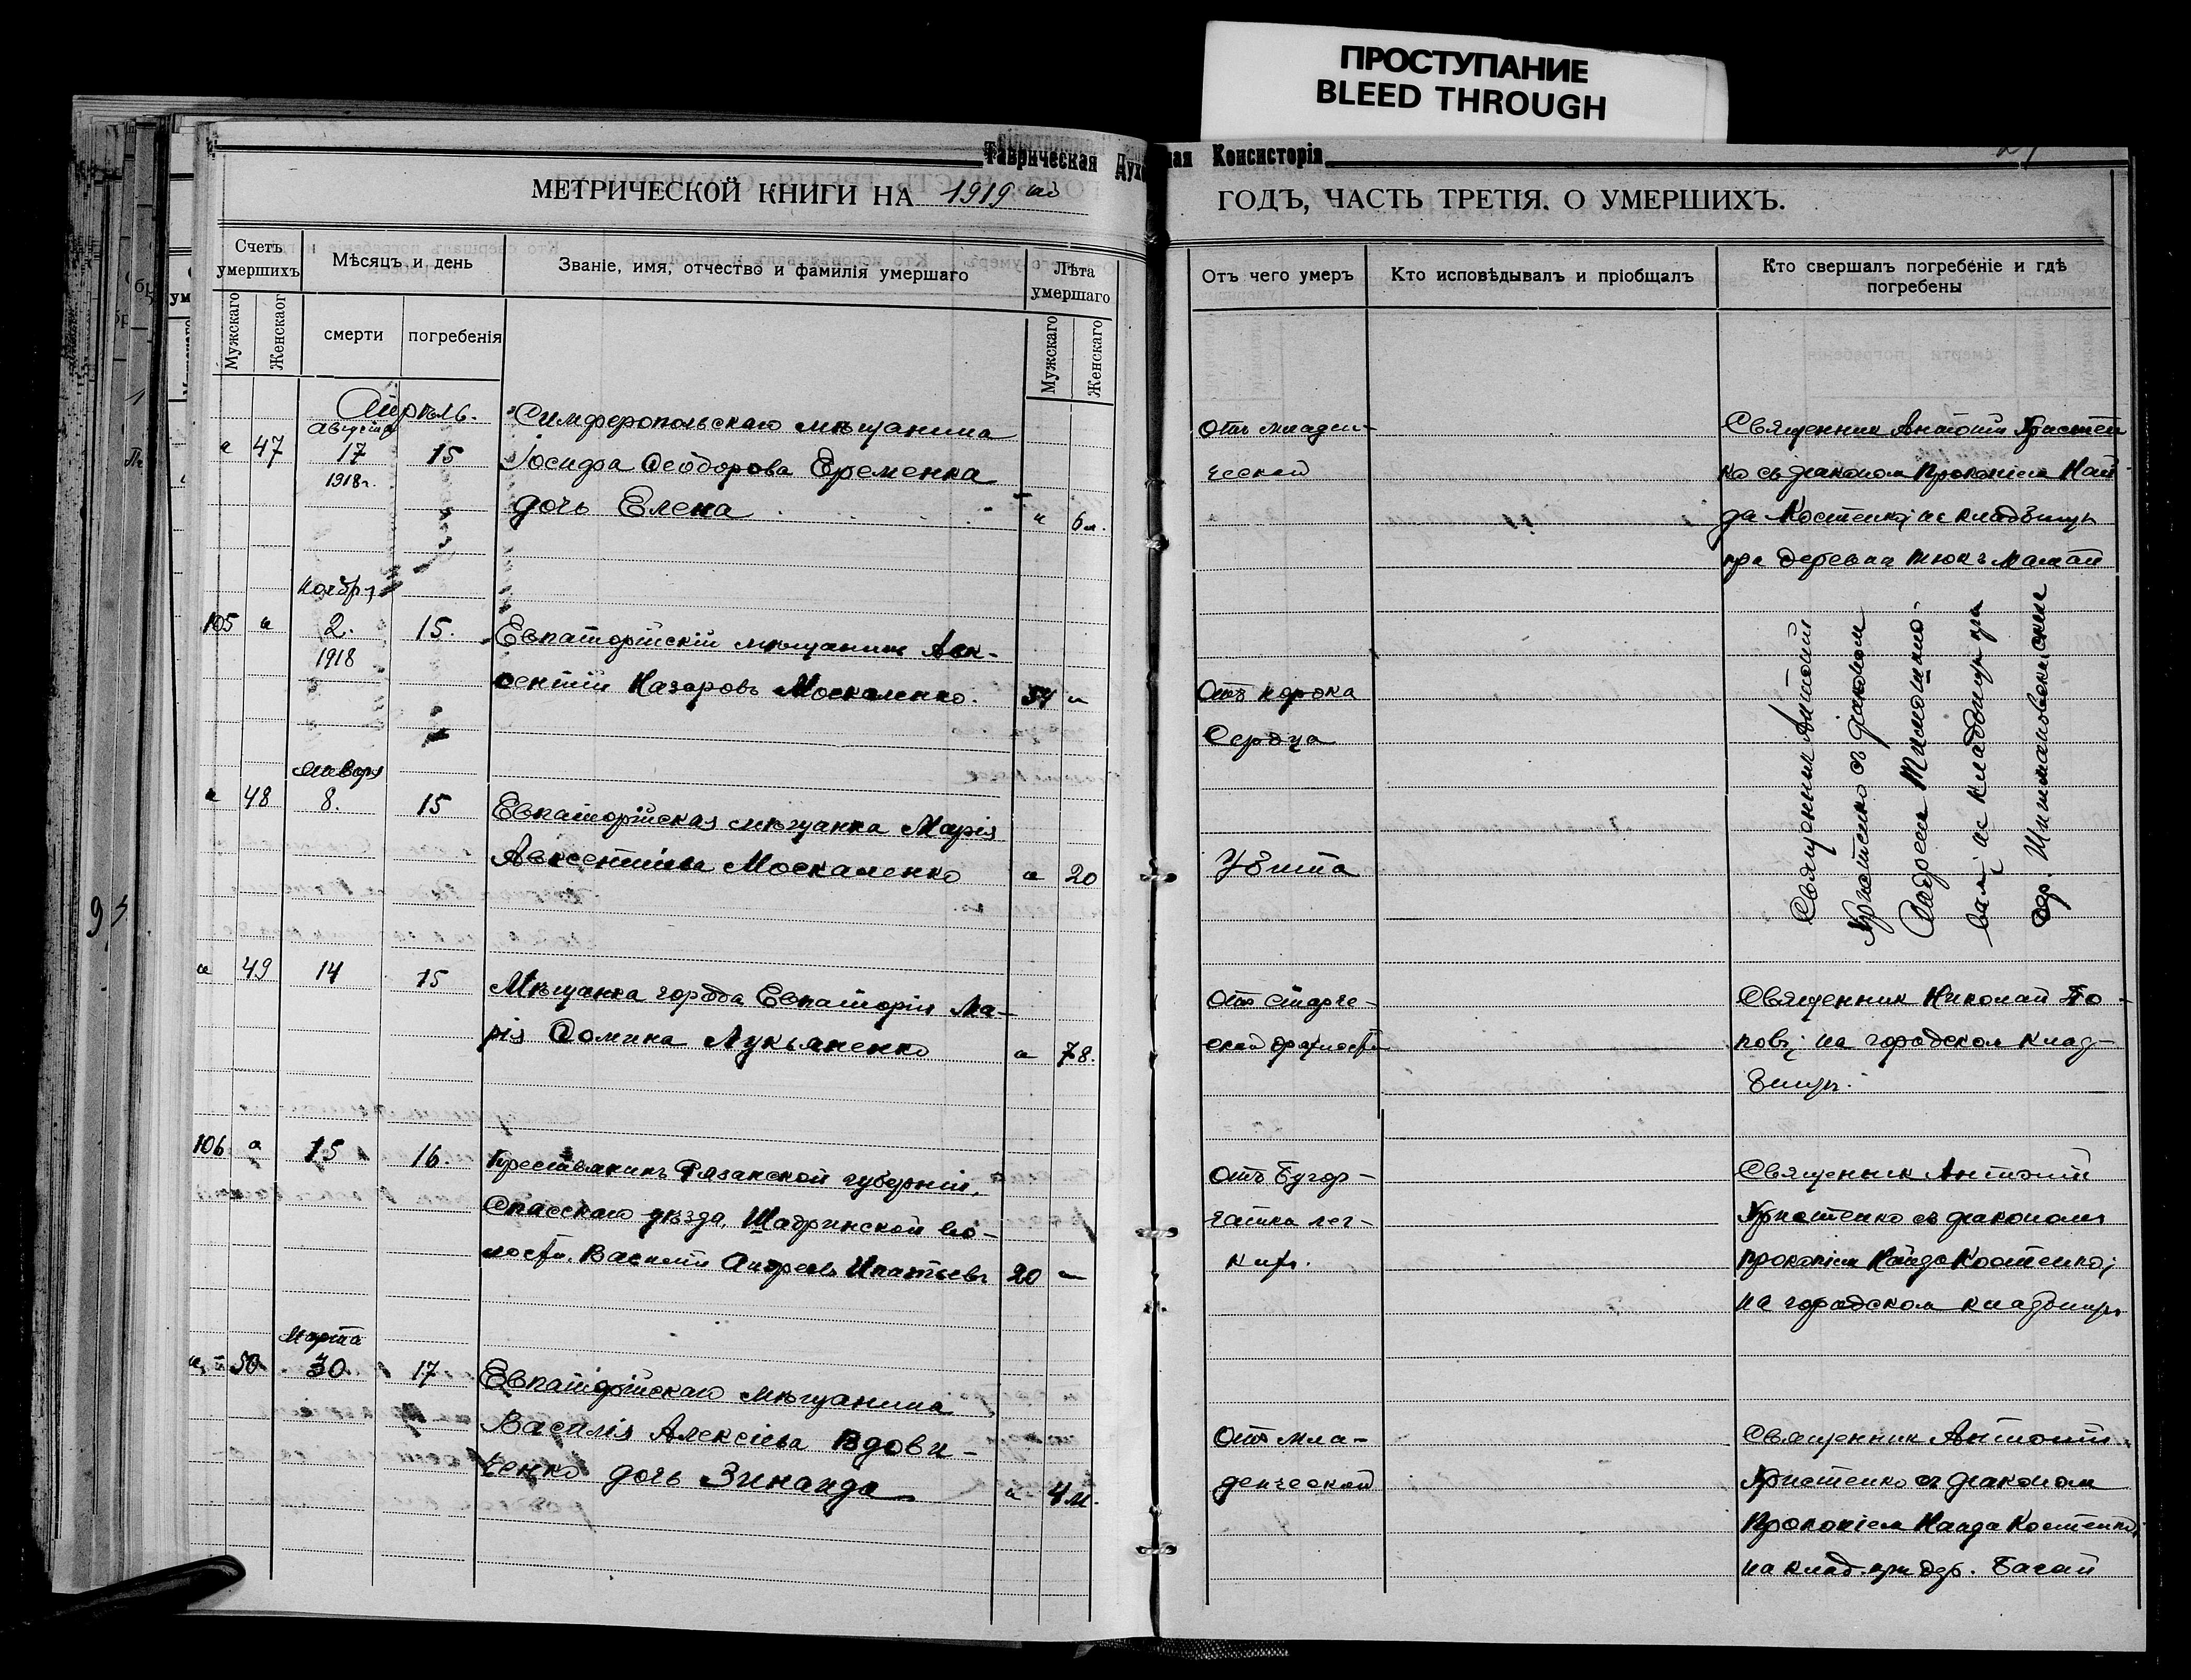 ПРОСТУПАНИЕ
BLEED THROUGH
Таврическая Духовная Консисторія
МЕТРИЧЕСКОЙ КНИГИ НА 1919 ый ГОДЪ, ЧАСТЬ ТРЕТІЯ. О УМЕРШИХЪ.
Счетъ умершихъ
Мужскаго
Женскаог
Мѣсяцъ и день
смерти
погребенія
Званіе, имя, отчество и фамилія умершаго
Лѣта умершаго
Мужскаго
Женскаго
Отъ чего умеръ
Кто исповѣдывалъ и пріобщалъ
Кто свершалъ погребеніе и гдѣ
погребены
Апрѣль.
августа
47 17 15
1918 г.
Симферопольскаго мѣщанина
Іосифа Ѳеодорова Еременка
дочь Елена
6 м.
Отъ младен-
ческой
Священник Антоній Христен
ко съ діаконом Прокопіем Най
да Костенко; на кладбищѣ
при деревнѣ Тюкъ Мамай
ноябр.
105 2. 15.
1918
Евпаторійскій мѣщанин Авк-
сентій Назаровъ Москаленко.
54
Отъ порока
Сердца
Священник Антоній
Христенко съ діаконом
Андреем Тимошкино-
вам; на кладбищѣ при
дер.
января
48 8. 15
Евпаторійская мѣщанка Марія
Авксентіева Москаленко
20
Убита
49 14 15
Мѣщанка города Евпаторіи Ма-
рія Ѳомина Лукьяненко
78.
Отъ старче-
ской дряхлости
Священник Николай По-
повъ; на городском клад-
бищѣ.
106 15 16.
Крестьянинъ Рязанской губерніи,
Спасскаго уѣзда, Шадринской во-
лости. Василій Андреевъ Ипатьевъ
20
Отъ бугор-
чатки лег-
кихъ.
Священник Антоній
Христенко съ діаконом
Прокопіем Найда Костенко;
на городском кладбищѣ
Марта
50 30 17
Евпаторійскаго мѣщанина
Василія Алексіева Вдови-
ченко дочь Зинаида
4 м.
Отъ мла-
денческой
Священник Антоній
Христенко съ діаконом
Прокопіем Найда Костенко;
на клад. при дер. Багай